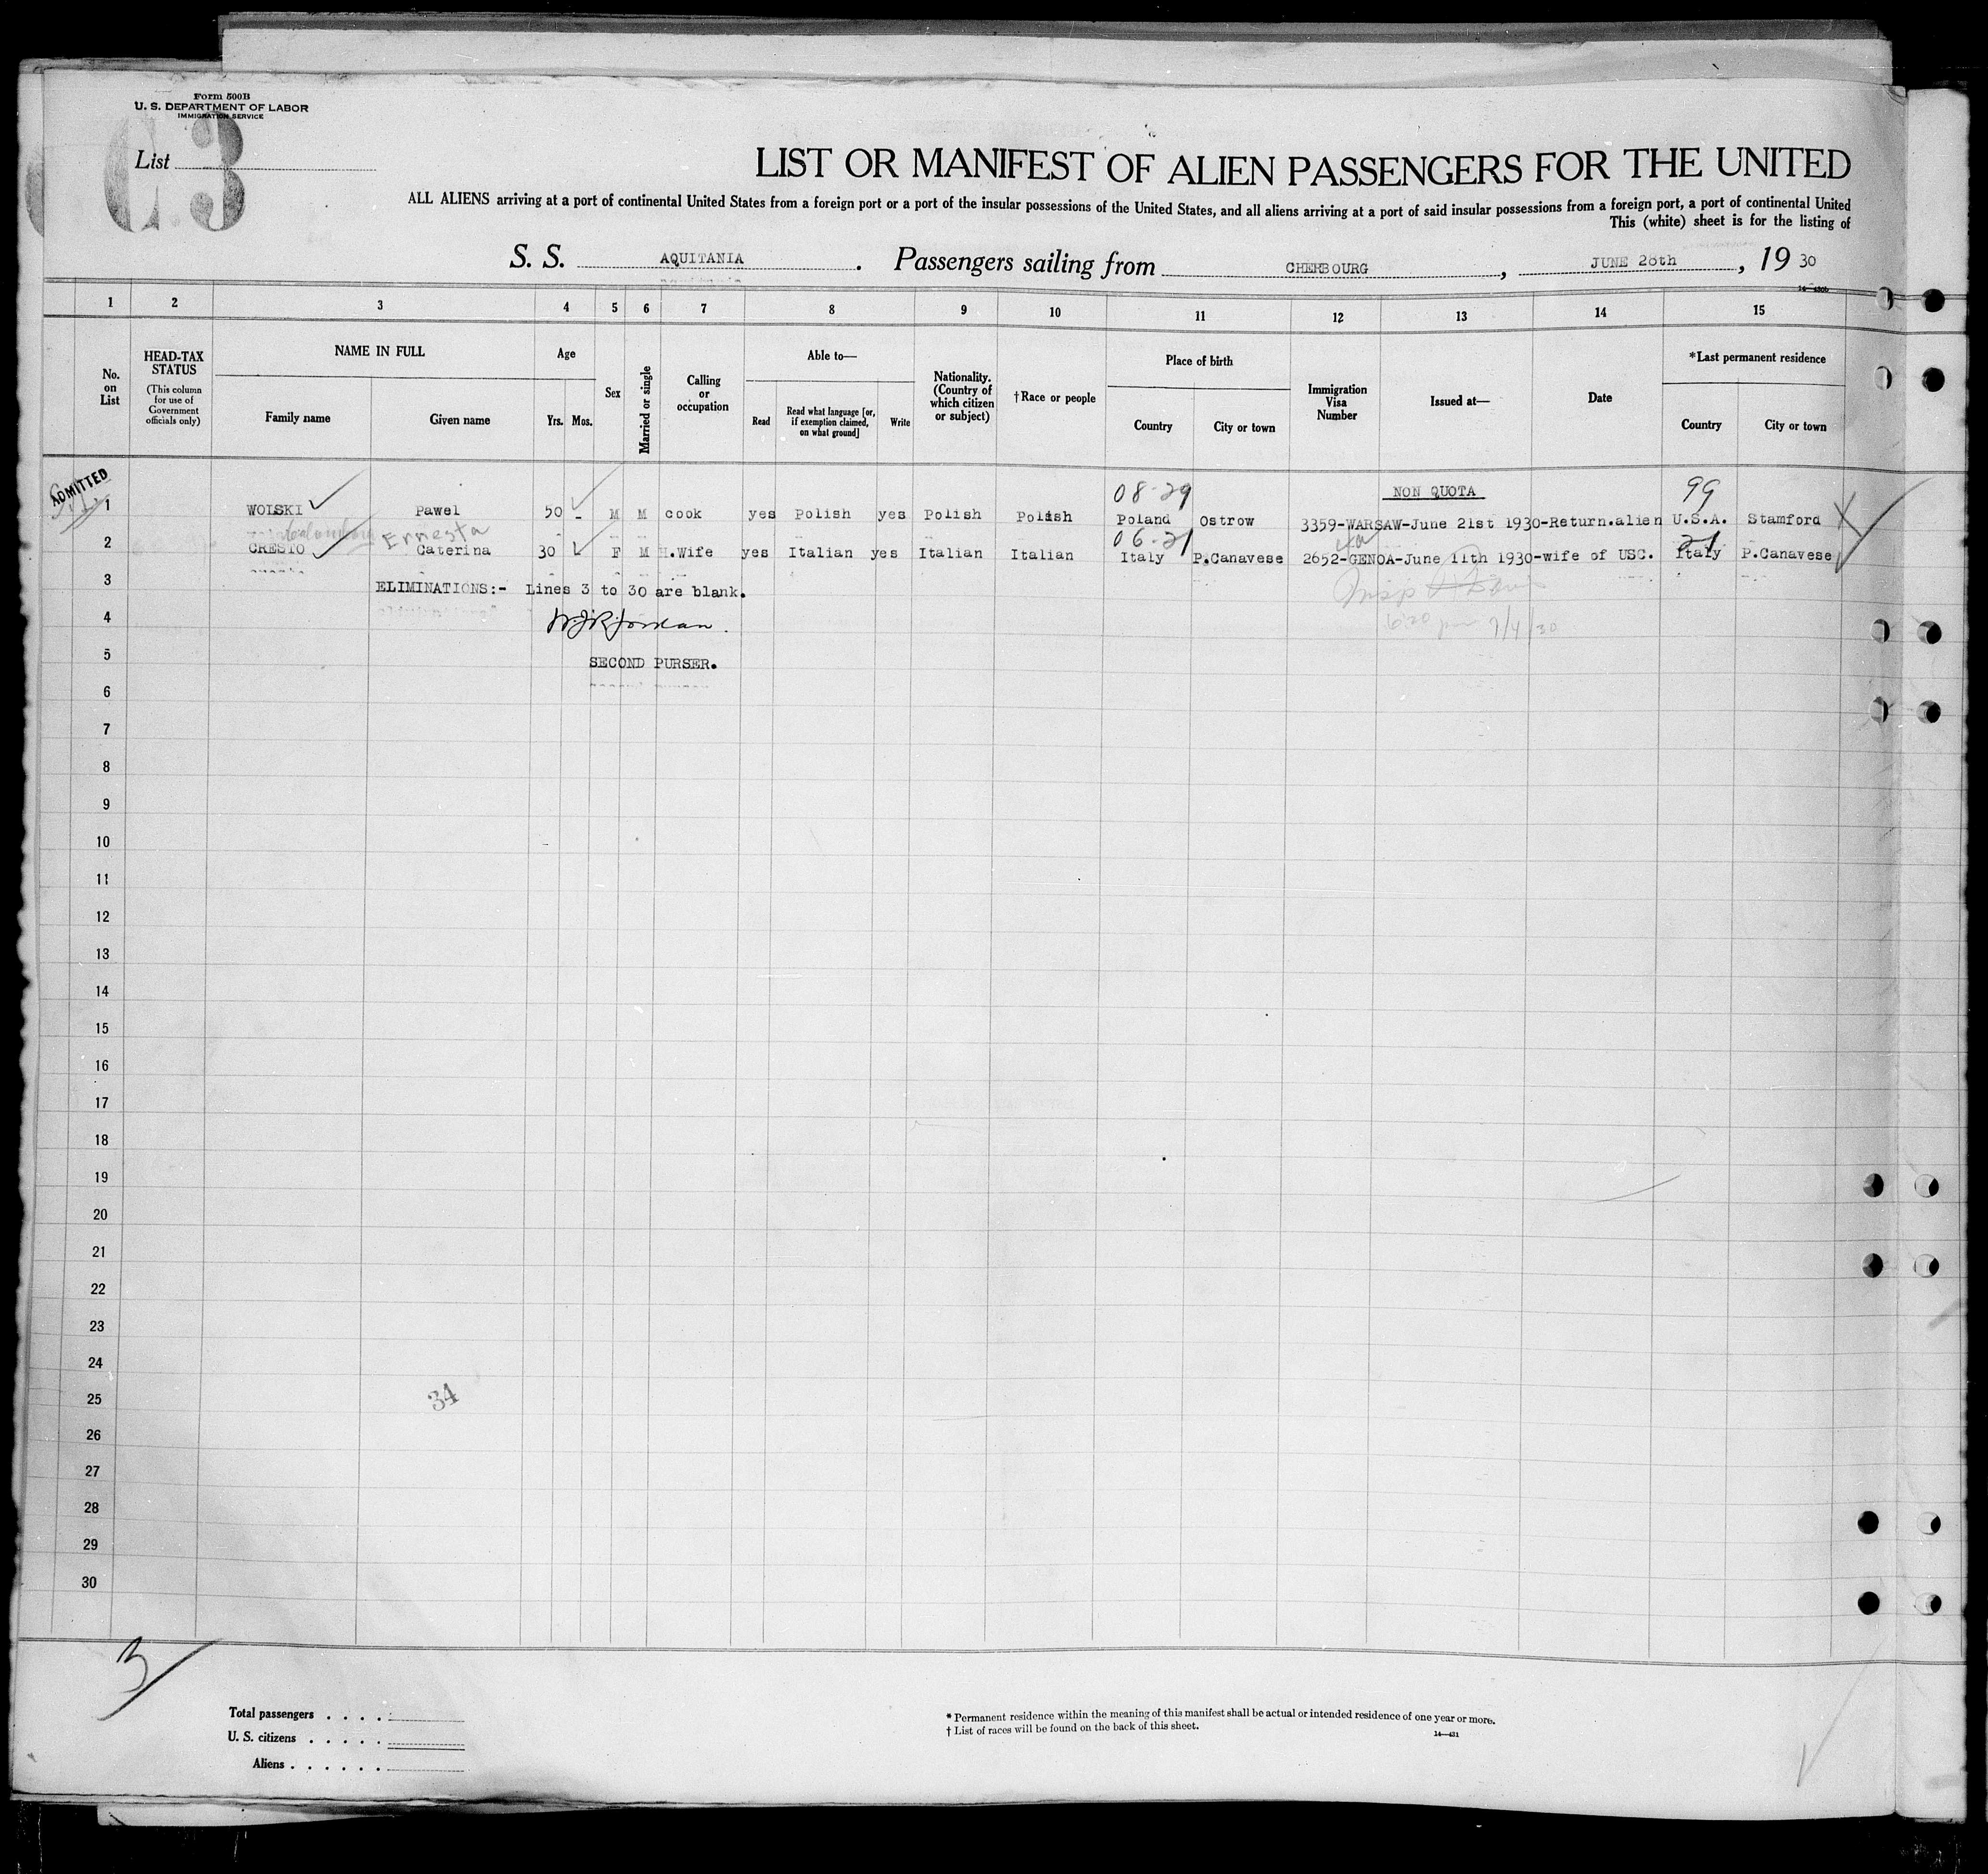 Form 500B
U. S. DEPARTMENT OF LABOR
IMMIGRATION SERVICE
C3
List
LIST OR MANIFEST OF ALIEN PASSENGERS FOR THE UNITED
ALL ALIENS arriving at a port of continental United States from a foreign port or a port of the insular possessions of the United States, and all aliens arriving at a port of said insular possessions from a foreign port, a port of continental United
This (white) sheet is for the listing of
S. S. AQUITANIA . Passengers sailing from CHERBOURG , JUNE 28th , 19 30
1 2 3 4 5 6 7 8 9 10 11 12 13 14 15
No. on List
HEAD-TAX STATUS
(This column for use of Government officials only)
NAME IN FULL
Family name Given name
Age
Yrs. Mos.
Sex
Married or single
Calling or occupation
Able to—
Read
Read what language [or, if exemption claimed, on what ground]
Write
Nationality. (Country of which citizen or subject)
†Race or people
Place of birth
Country City or town
Immigration Visa Number
Issued at—
Date
*Last permanent residence
Country City or town
ADMITTED
08-29 NON QUOTA 99
1 WOLSKI Pawel 50 - M M cook yes Polish yes Polish Polish Poland Ostrow 3359-WARSAW-June 21st 1930-Return.alien U.S.A. Stamford X
Ernesta 06-21 21
2 CRESTO Caterina 30 F M H.Wife yes Italian yes Italian Italian Italy P.Canavese 2652-GENOA-June 11th 1930-wife of USC. Italy P.Canavese
3 ELIMINATIONS:- Lines 3 to 30 are blank.
4 W.J.R. Jordan. 7/4/30
5 SECOND PURSER.
6
7
8
9
10
11
12
13
14
15
16
17
18
19
20
21
22
23
24
25 34
26
27
28
29
30
3
Total passengers . . . .
U. S. citizens . . . . .
Aliens . . . . . .
* Permanent residence within the meaning of this manifest shall be actual or intended residence of one year or more.
† List of races will be found on the back of this sheet.
14—431